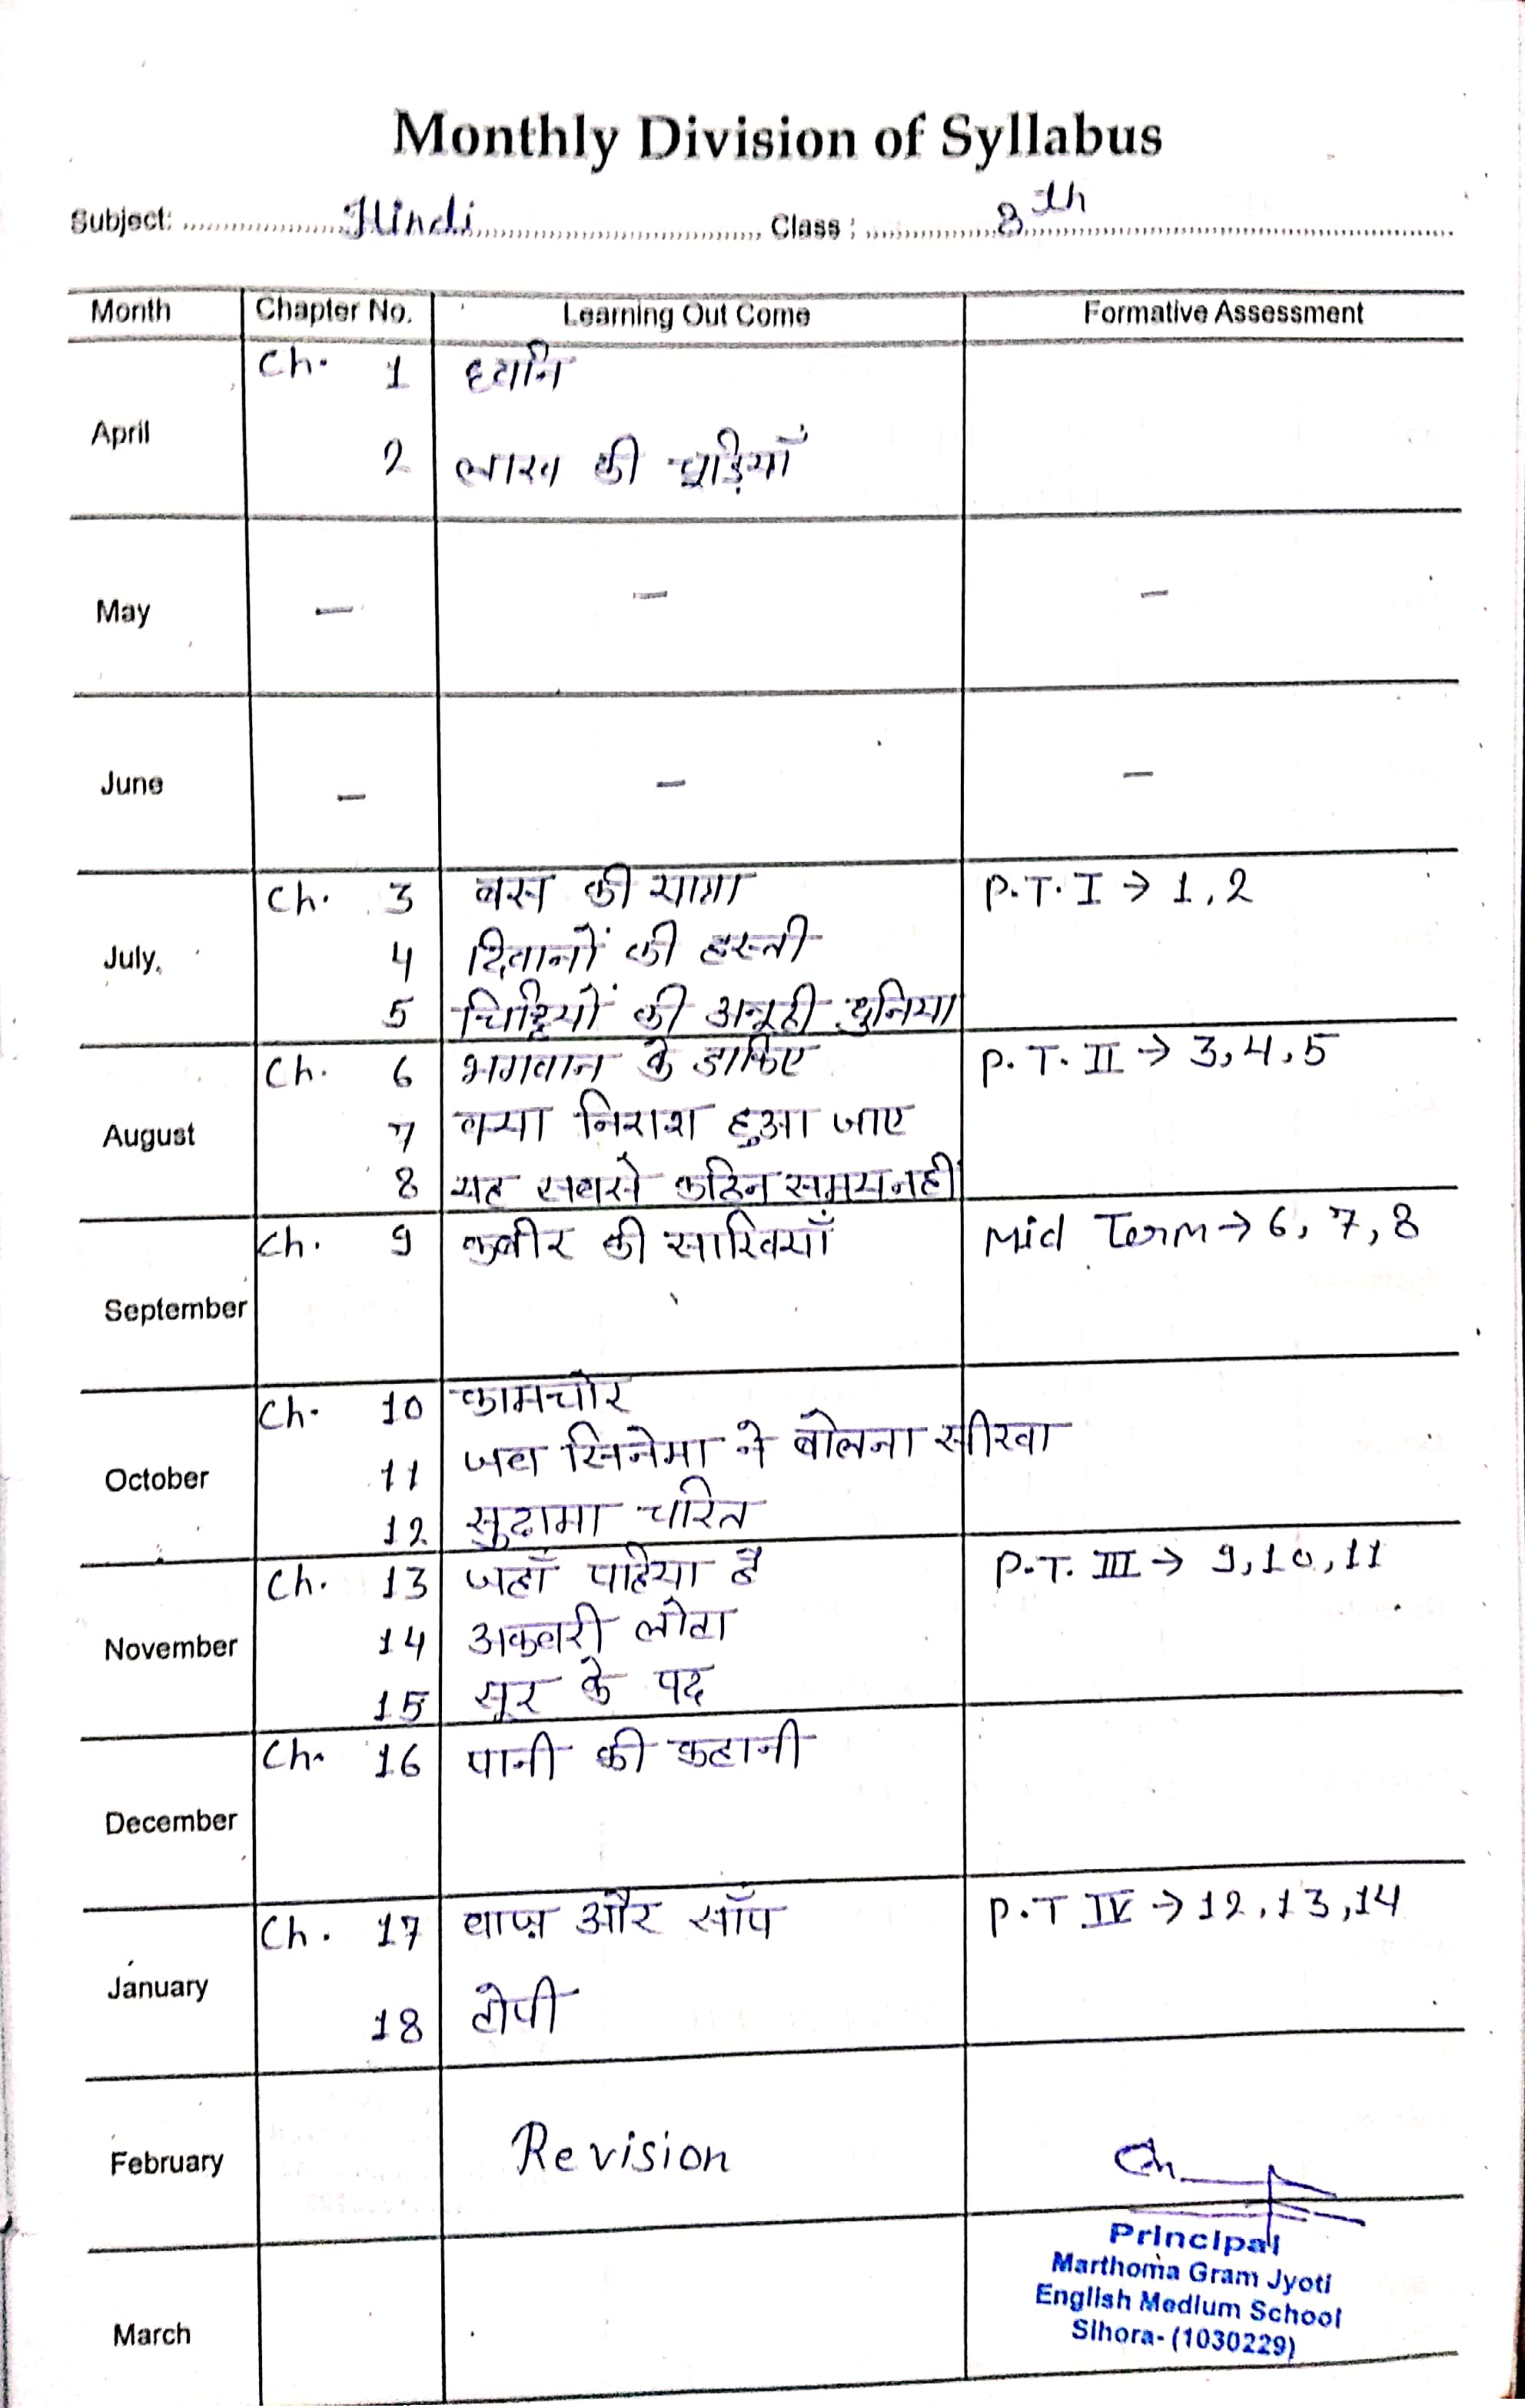 Monthly Division of Syllabus
Subject: Hindi Class: 8th
Month Chapter No. Learning Out Come Formative Assessment
April Ch. 1 ध्वनि
2 लाख की चूड़ियाँ
May - - -
June - - -
July, Ch. 3 बस की यात्रा P.T. I → 1, 2
4 दिवानों की हस्ती
5 चिट्ठियों की अनूठी दुनिया
August Ch. 6 भगवान के डाकिए P.T. II → 3, 4, 5
7 क्या निराश हुआ जाए
8 यह सबसे कठिन समय नहीं
September Ch. 9 कबीर की साखियाँ Mid Term → 6, 7, 8
October Ch. 10 कामचोर
11 जब सिनेमा ने बोलना सीखा
12 सुदामा चरित
November Ch. 13 जहाँ पहिया है P.T. III → 9, 10, 11
14 अकबरी लोटा
15 सूर के पद
December Ch. 16 पानी की कहानी
January Ch. 17 बाज़ और साँप P.T IV → 12, 13, 14
18 टोपी
February Revision
March
Principal
Marthoma Gram Jyoti
English Medium School
Sihora- (1030229)